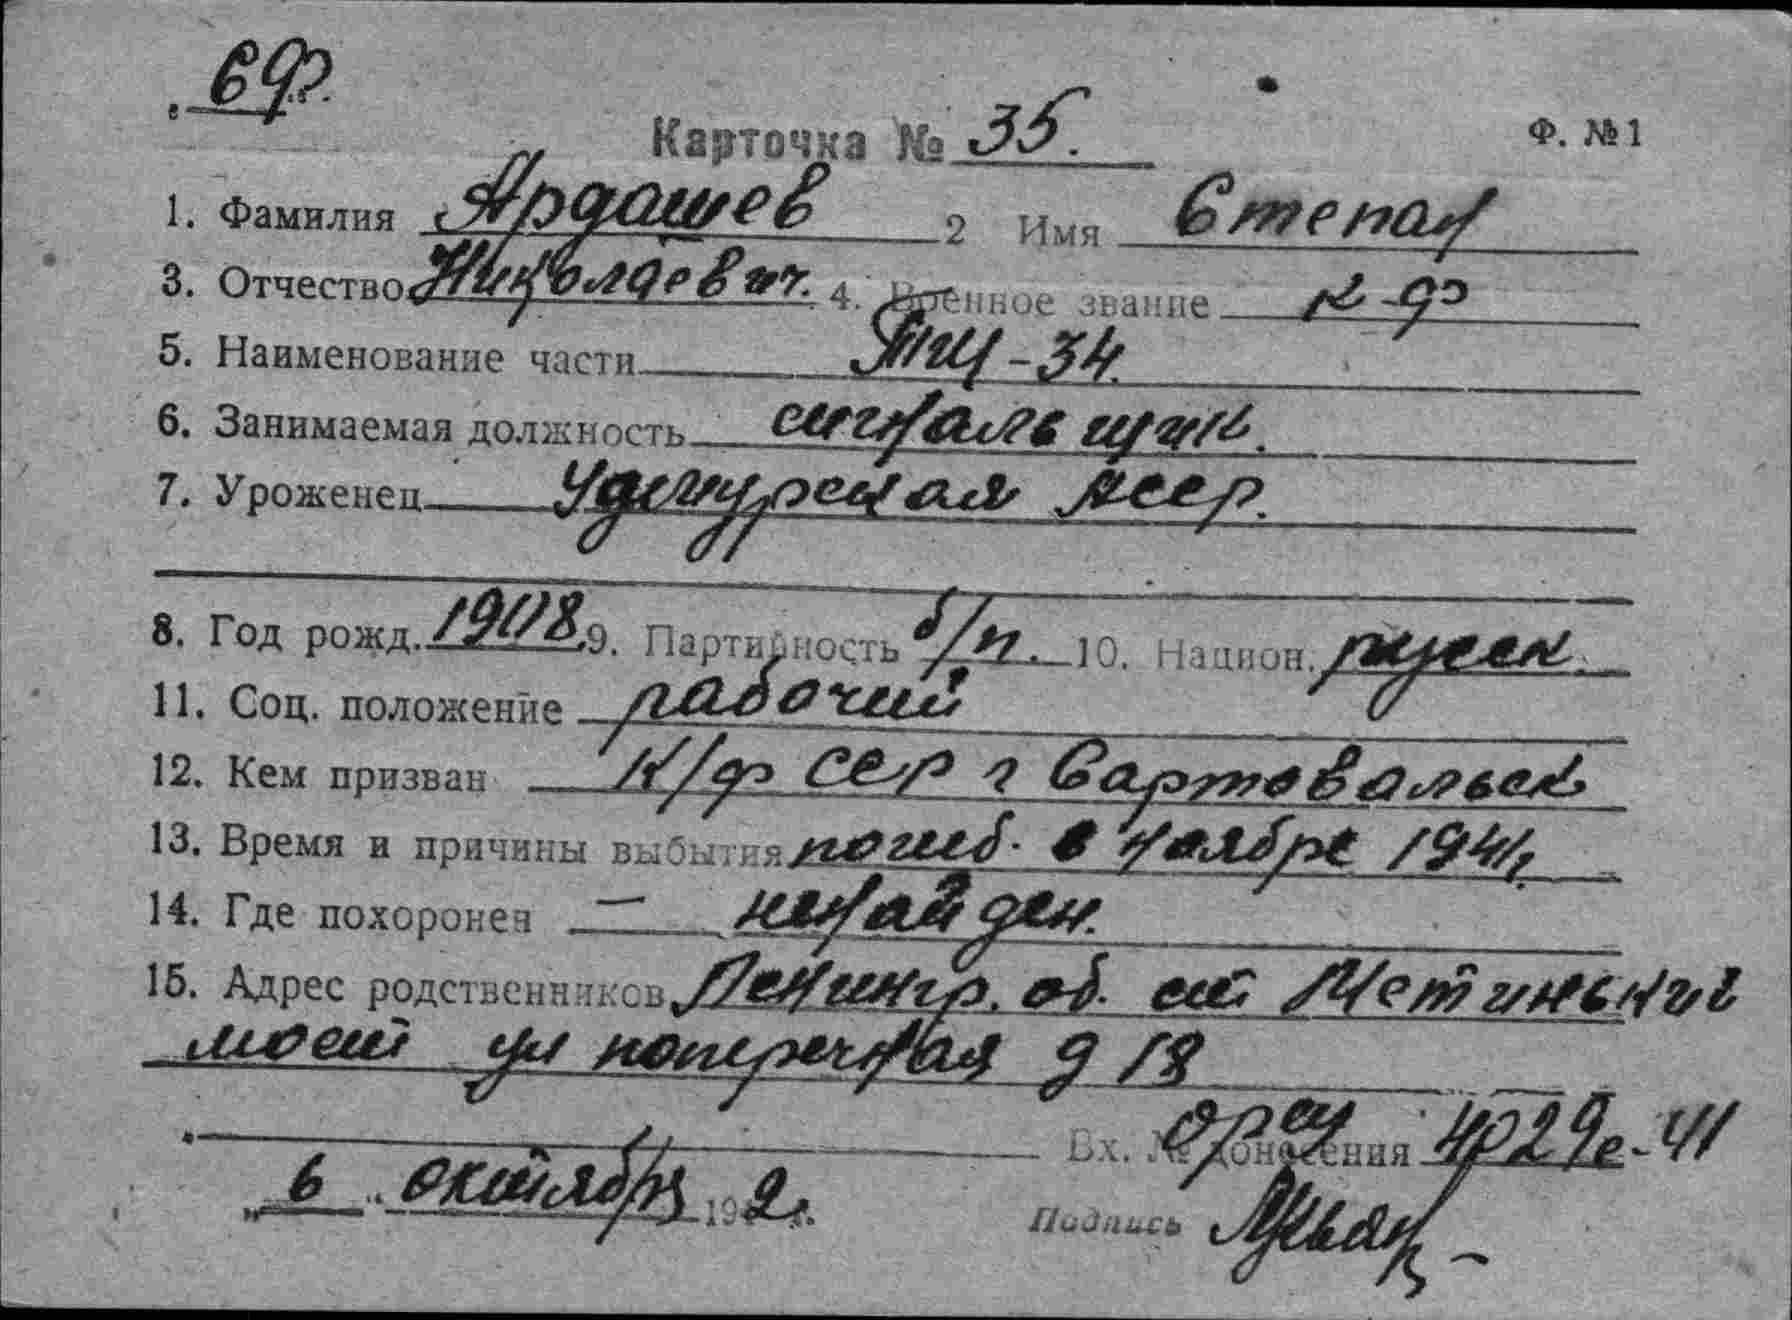 69
Карточка № 35.
Ф. №1
1. Фамилия Ардашев 2 Имя Степан
3. Отчество Николаевич. 4. Военное звание к-ф
5. Наименование части ТЩ-34.
6. Занимаемая должность сигнальщик.
7. Уроженец Удмурская АССР.
8. Год рожд. 1908 9. Партийность б/п. 10. Национ. русск
11. Соц. положение рабочий
12. Кем призван К/ф ССР г Сартовальск
13. Время и причины выбытия погиб. в ноябре 1941г
14. Где похоронен — ненайден.
15. Адрес родственников Ленингр. об. ст Мстинький
мост ул поперечная д 18
Вх. № донесения 4029с-41
"6" октября 1942г.
Подпись